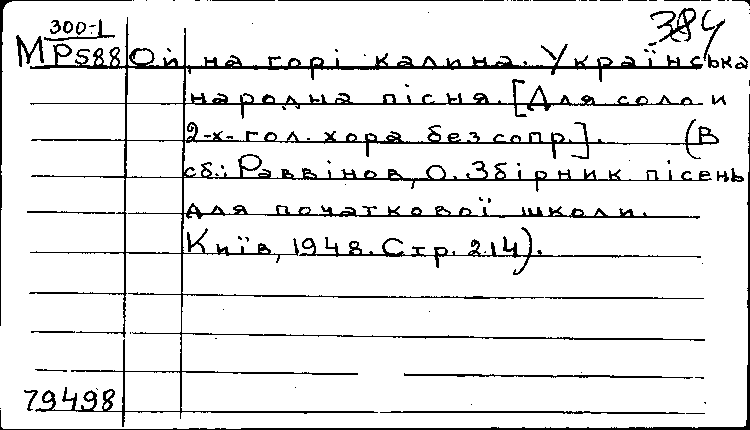 300-1
384
МР588 Ой, на горі калина. Українська
народна пісня. [Для соло и
2-х-гол. хора без сопр.]. (В
сб.: Раввінов, О. Збірник пісень
для початкової школи.
Київ, 1948. Стр. 214).
79498